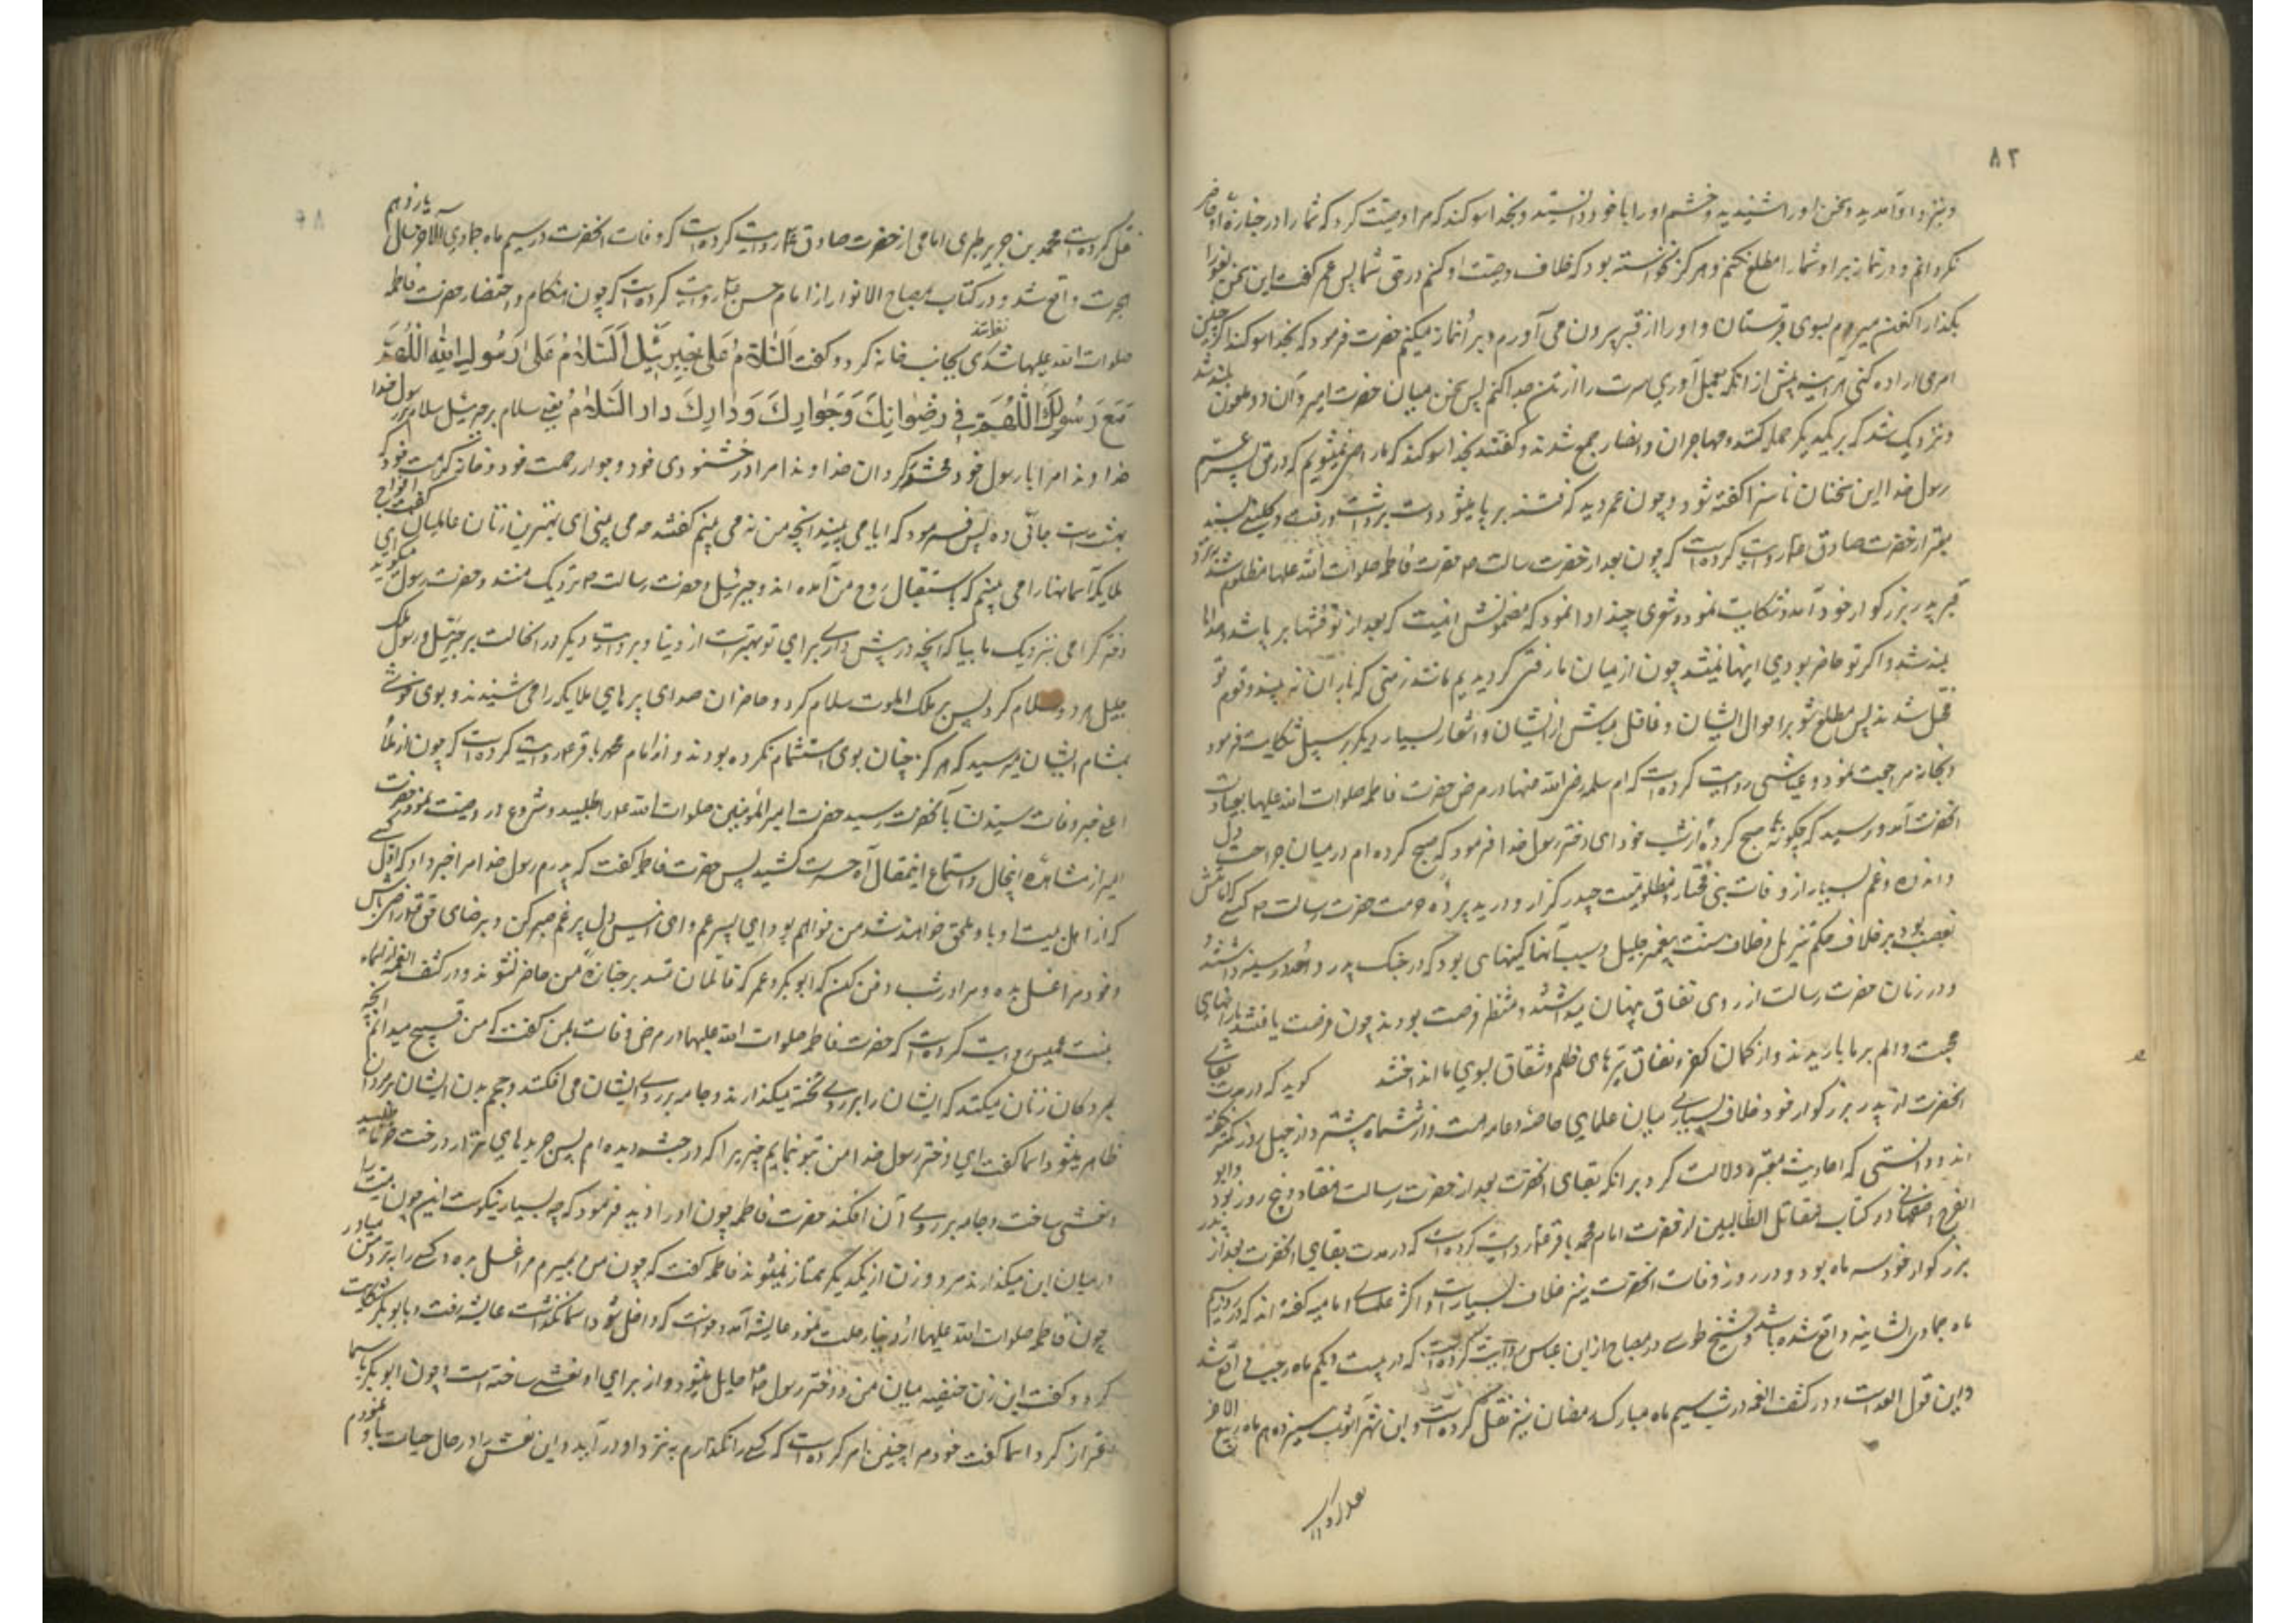 ۸۳
و بنزد او آمدید و سخن او را شنیدید و خشم او را با خود دانستید و بخدا سوکند که مرا وصیت کرد که شما را در جنازه او حاضر
نکردانم و در نماز بر او شما را مطلع نکنم و هرکز نخواسته بود که خلاف وصیت او کنم در حق شما پس عمر کفت این سخن
بکذار اکنون میروم بسوی قبرستان و او را از قبر بیرون می آورم و بر او نماز میکنم حضرت فرمود که بخدا سوکند اکر چنین
امری اراده کنی هر آینه پیش از انکه بعمل آوری سرت را از تن جدا کنم پس سخن میان حضرت امیر و آن دو ملعون بلند شد
و نزدیک شد که بر یکدیکر حمله کنند و مهاجران و انصار جمع شدند و کفتند بخدا سوکند که ما راضی نمیشویم که در حق پسر عم
رسول خدا این سخنان ناسزا کفته شود و چون عمر دید که فتنه بر پا میشود دست برداشت و رفت و کلینی بسند
معتبر از حضرت صادق ع روایت کرده است که چون بعد از حضرت رسالت ص حضرت فاطمه صلوات الله علیها مظلوم شد بنزد
قبر پدر بزرکوار خود آمد و شکایت نمود و شعری چند ادا نمود که مضمونش اینست که بعد از تو فتنها بر پا شد و صداها
بلند شد و اکر تو حاضر بودی اینها نمیشد چون از میان ما رفتی کردیدیم مانند زمینی که باران نه بیند و قوم تو
مختل شدند پس مطلع شو بر احوال ایشان و غافل مباش از ایشان و اشعار بسیار دیکر بر سبیل شکایت فرمود
و بخانه مراجعت نمود و عیاشی روایت کرده است که ام سلمه رضی الله عنها در مرض حضرت فاطمه صلوات الله علیها بعیادت
انحضرت آمد و پرسید که چکونه صبح کرده از شب خود ای دختر رسول خدا فرمود که صبح کرده ام در میان جراحت دل
و اندوه و غم بسیار از وفات نبی مختار و مظلومیت حیدر کرار و درید پرده حرمت حضرت رسالت ص کسی که امامتش
غصب بود بر خلاف حکم تنزیل و خلاف سنت پیغمبر جلیل و سبب آنها کینهای بود که در جنک بدر و احد در سینه داشتند
و در زنان حضرت رسالت از روی نفاق پنهان میداشتند و منتظر فرصت بودند چون فرصت یافتند بارانهای
محبت و الم بر ما باریدند و از کمان کفر و نفاق تیرهای ظلم و شقاق بسوی ما انداختند کوید که در مدت بقای
انحضرت از پدر بزرکوار خود خلاف بسیاری میان علمای خاصه و عامه است و از ششماه بیشتر و از چهل روز کمتر نکفته
اند و دانستی که احادیث معتبره دلالت کرد بر انکه بقای انحضرت بعد از حضرت رسالت هفتاد و پنج روز بود و ابو
الفرج اصفهانی در کتاب مقاتل الطالبین از حضرت امام محمد باقر ع روایت کرده است که در مدت بقای انحضرت بعد از پدر
بزرکوار خود سه ماه بود و در روز وفات انحضرت نیز خلاف بسیار است و اکثر علمای امامیه کفته اند که در روز سیم
ماه جمادی الثانیه واقع شده باشد و شیخ طوسی در مصباح از ابن عباس روایت کرده است که در بیست و یکم ماه رجب واقع شد
و این قول العد است و در کشف الغمه در شب سیم ماه مبارک رمضان نیز نقل کرده است و ابن شهر آشوب سیزدهم ماه ربیع الاخر
نقل کرده است محمد بن جریر طبری امامی از حضرت صادق ع روایت کرده است که وفات انحضرت در سیم ماه جمادی الآخر سال یازدهم
هجرت واقع شد و در کتاب مصباح الانوار از امام حسن ع روایت کرده است که چون هنکام احتضار حضرت فاطمه
صلوات الله علیها شد نظر تندی بجانب خانه کرد و کفت اَلسَّلامُ عَلی جِبرَئیلَ اَلسَّلامُ عَلی رَسُولِ اللهِ اَللّهُمَّ
مَعَ رَسُولِكَ اَللّهُمَّ فی رِضوانِكَ وَجَوارِكَ وَدارِكَ دارِ السَّلامِ یعنی سلام بر جبرئیل سلام بر رسول خدا
خداوندا مرا با رسول خود محشور کردان خداوندا مرا در خشنودی خود و جوار رحمت خود و خانه کرامت خود که
بهشت است جای ده پس فرمود که ایا می بینید انچه من می بینم کفتند چه می بینی ای بهترین زنان عالمیان کفت افواج
ملایکه آسمانها را می بینم که باستقبال روح من آمده اند و جبرئیل و حضرت رسالت ص نزدیک منند و حضرت رسول میکوید ای
دختر کرامی نزدیک ما بیا که انچه در پیش داری برای تو بهتر است از دنیا و بروایت دیکر در انحالت بر جبرئیل و رسول ملک
جلیل هر دو سلام کرد پس بر ملک الموت سلام کرد و حاضران صدای پرهای ملایکه را می شنیدند و بوی خوشی
بمشام ایشان میرسید که هرکز چنان بوی استشمام نکرده بودند و از امام محمد باقر ع روایت کرده است که چون از ملأ
اعلی خبر وفات سیدة نسا بآنحضرت رسید حضرت امیر المؤمنین صلوات الله علیه را طلبید و شروع در وصیت نمود حضرت
امیر از مشاهده اینحال و استماع اینمقال آه حسرت کشید پس حضرت فاطمه کفت که پدرم رسول خدا مرا خبر داد که اول کسی
که از اهل بیت او باو ملحق خواهند شد من خواهم بود ای پسر عم و ای انیس دل پر غم صبر کن و برضای حق تعالی راضی باش
و خود مرا غسل بده و مرا در شب دفن کن که ابو بکر و عمر که قاتلان منند بر جنازه من حاضر نشوند و در کشف الغمه از اسماء
بنت عمیس روایت کرده است که حضرت فاطمه صلوات الله علیها در مرض وفات بمن کفت که من قبیح میدانم انچه
بمردکان زنان میکنند که ایشان را بر روی تخته میکذارند و جامه بر روی ایشان می افکنند و حجم بدن ایشان بر مردان
ظاهر میشود اسما کفت ای دختر رسول خدا من بتو بنمایم چیزی را که در حبشه دیده ام پس جریدهای تر از درخت خرما طلبید
و نعشی ساخت و جامه بر روی آن افکند حضرت فاطمه چون او را دید فرمود که چه بسیار نیکوست این چون میت را
در میان این میکذارند مرد و زن از یکدیکر ممتاز نمیشوند فاطمه کفت که چون من بمیرم مرا غسل بده و کسی را بنزد من میاور
چون فاطمه صلوات الله علیها از دنیا رحلت نمود عایشه آمد و خواست که داخل شود اسما نکذاشت عایشه رفت و بابو بکر شکایت
کرد و کفت این زن خثعمیه میان من و دختر رسول خدا حایل میشود و از برای او نعشی ساخته است چون ابو بکر باسما
اعتراض کرد اسما کفت خودم را چنین امر کرده است که کسی را نکذارم بنزد او در آید و این نعش را در حال حیات باو نمودم